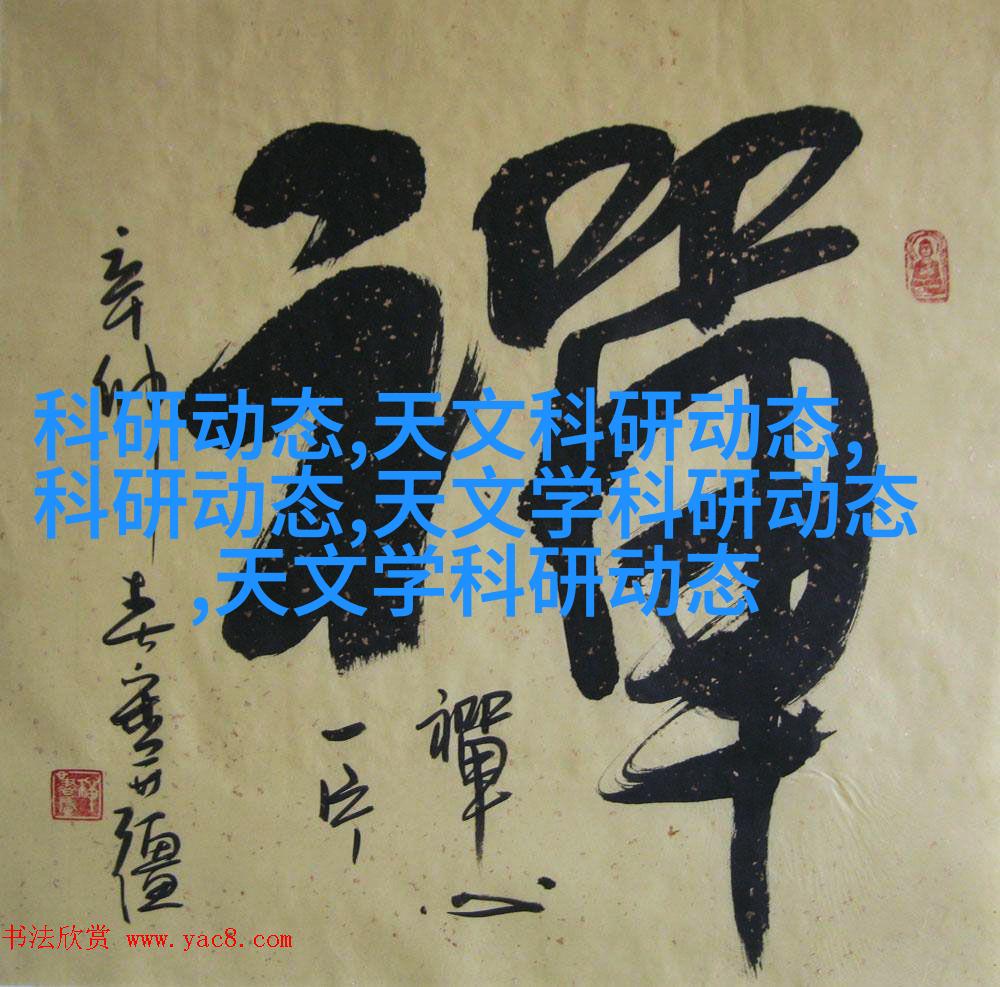 禪
禪心
一片
辛卯春
科研动态,天文科研动态,
科研动态,天文学科研动态
,天文学科研动态
书法欣赏 www.yac8.com